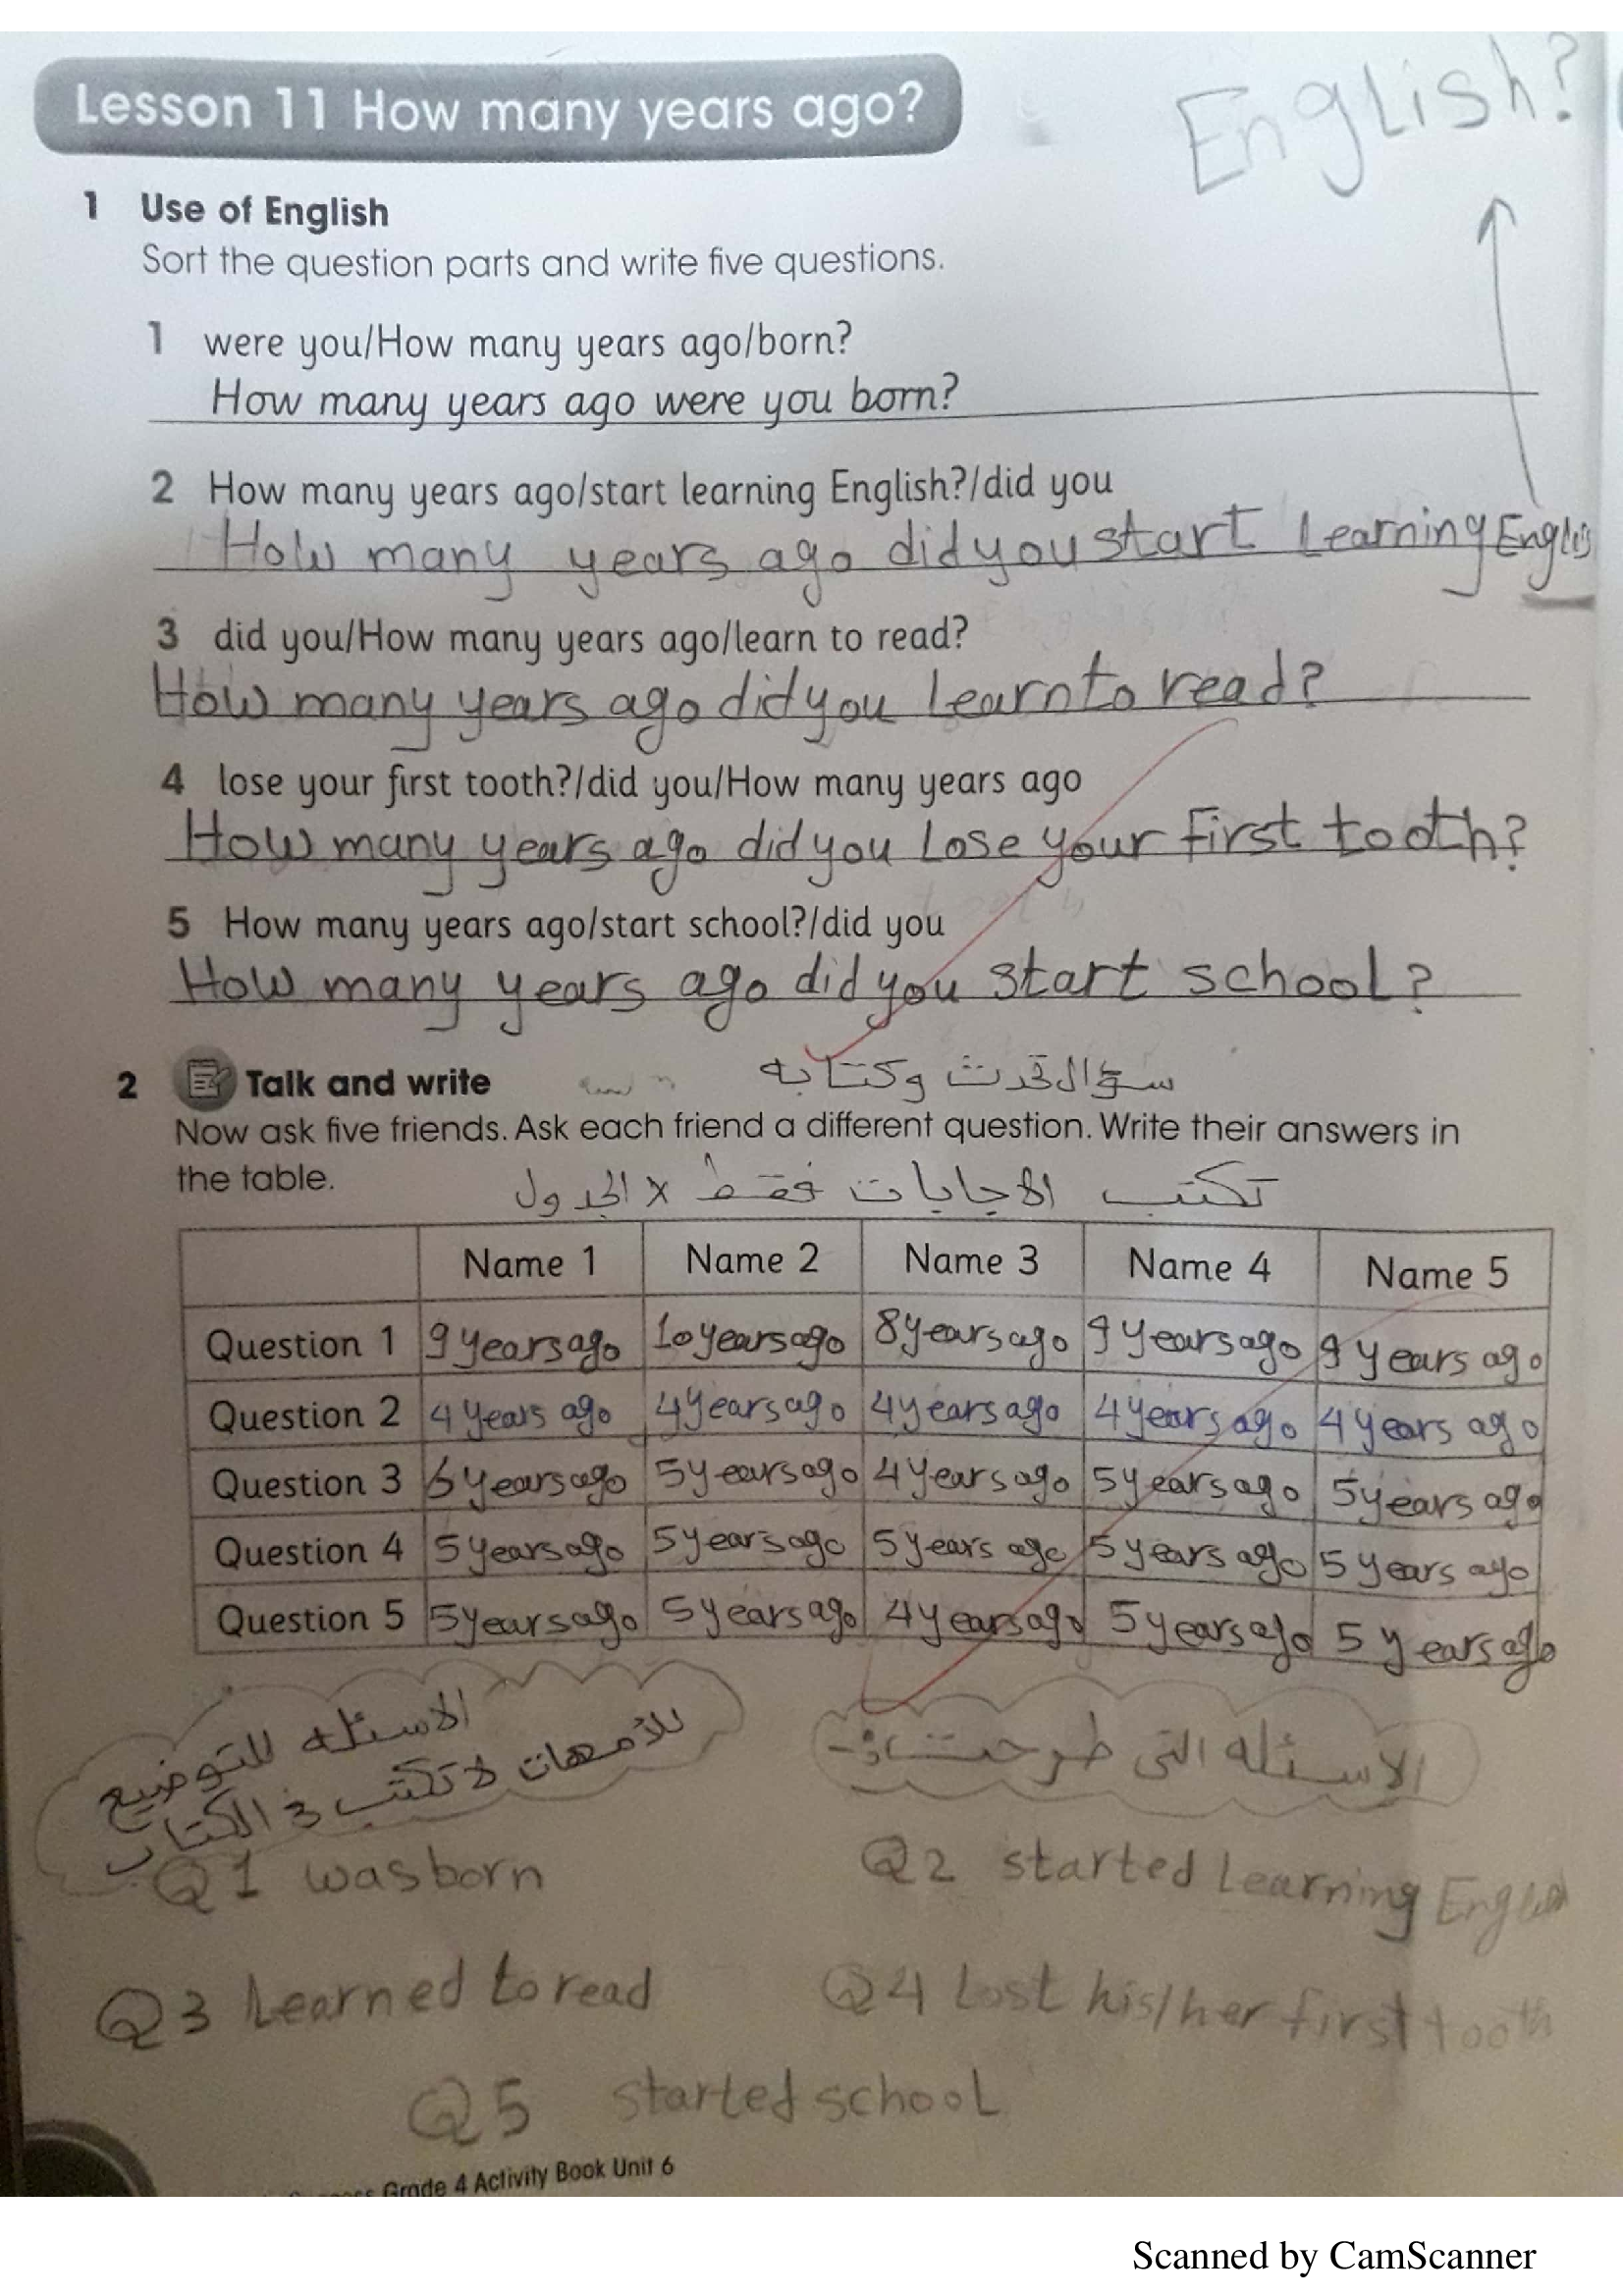 Lesson 11 How many years ago?
English?
1 Use of English
Sort the question parts and write five questions.
1 were you/How many years ago/born?
How many years ago were you born?
2 How many years ago/start learning English?/did you
How many years ago did you start Learning Englis
3 did you/How many years ago/learn to read?
How many years ago did you Learn to read?
4 lose your first tooth?/did you/How many years ago
How many years ago did you Lose your first tooth?
5 How many years ago/start school?/did you
How many years ago did you start school?
سؤال تحدث وكتابه
2 Talk and write
Now ask five friends. Ask each friend a different question. Write their answers in
the table.
تكتب الاجابات فقط x الجدول
Name 1 Name 2 Name 3 Name 4 Name 5
Question 1 9 years ago 10 years ago 8 years ago 9 years ago 9 years ago
Question 2 4 years ago 4 years ago 4 years ago 4 years ago 4 years ago
Question 3 6 years ago 5 years ago 4 years ago 5 years ago 5 years ago
Question 4 5 years ago 5 years ago 5 years ago 5 years ago 5 years ago
Question 5 5 years ago 5 years ago 4 years ago 5 years ago 5 years ago
الاسئله للتوضيح
للأمهات لا تكتب في الكتاب
الاسئله التى طرحت
Q1 was born
Q2 started Learning English
Q3 Learned to read
Q4 Lost his/her first tooth
Q5 started school
Grade 4 Activity Book Unit 6
Scanned by CamScanner